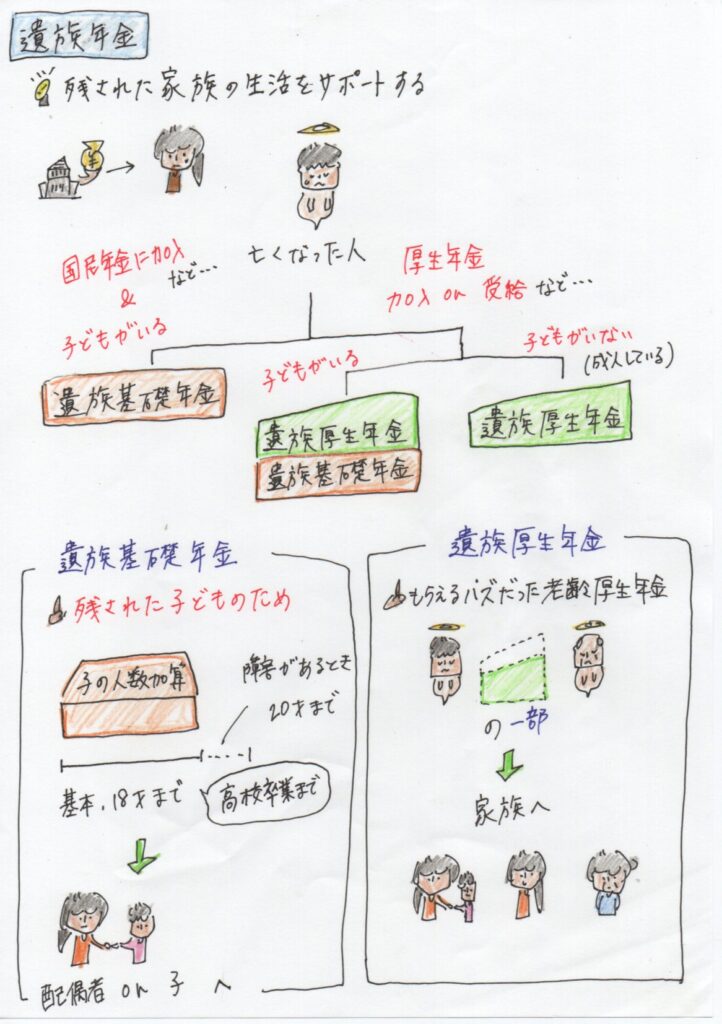 遺族年金
残された家族の生活をサポートする
¥
亡くなった人
国民年金に加入
など…
&
子どもがいる
厚生年金
加入 or 受給 など…
子どもがいる
子どもがいない
(成人している)
遺族基礎年金
遺族厚生年金
遺族基礎年金
遺族厚生年金
遺族基礎年金
残された子どものため
子の人数加算
障害があるとき
20才まで
基本、18才まで
高校卒業まで
配偶者 or 子 へ
遺族厚生年金
もらえるハズだった老齢厚生年金
の一部
家族へ